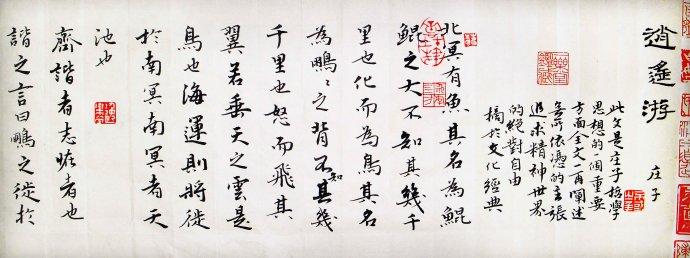 逍遙游
庄子
此文是庄子哲學
思想的個重要
方面全文一再闡述
無所依憑的主張
追求精神世界
的絕對自由
摘於文化經典
北冥有魚其名為鯤
鯤之大不知其幾千
里也化而為鳥其名
為鵬〻之背不知其幾
千里也怒而飛其
翼若垂天之雲是
鳥也海運則將徙
於南冥南冥者天
池也
齊諧者志怪者也
諧之言曰鵬之徙於